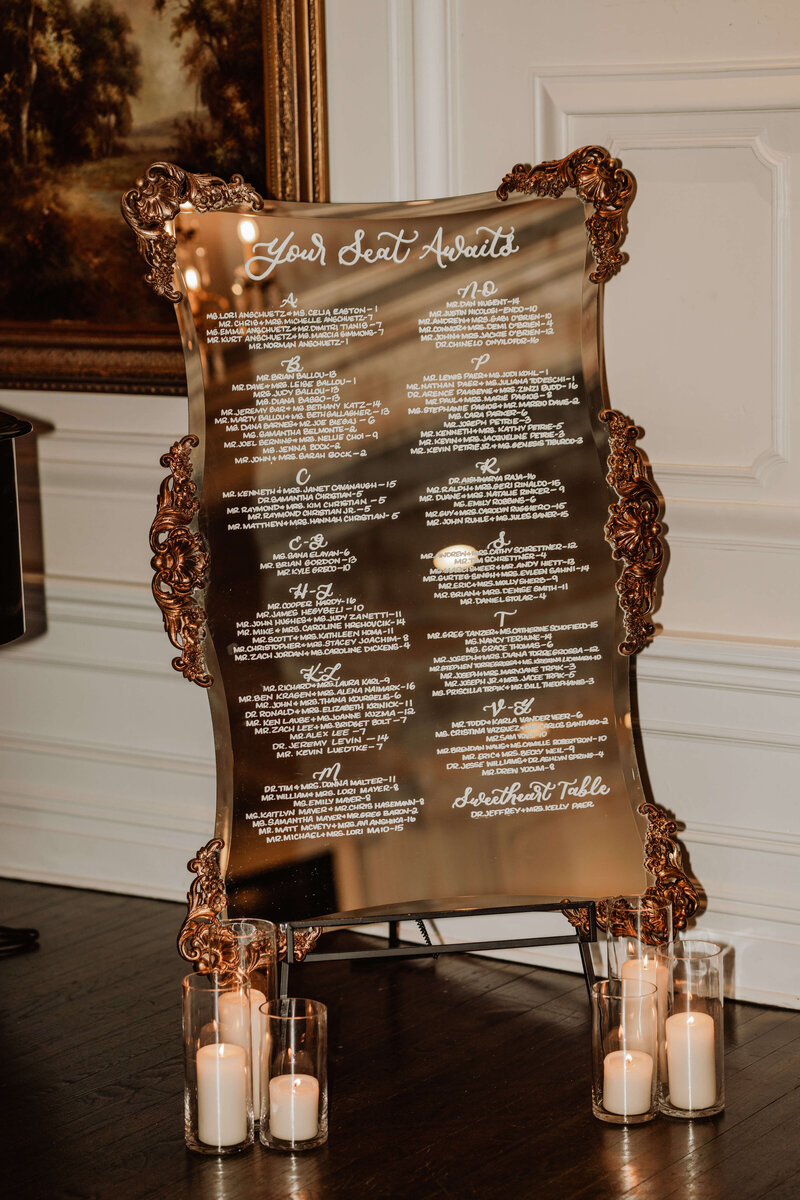 Your Seat Awaits
A
MS. LORI ANSCHUETZ + MS. CELIA EASTON - 1
MR. CHRIS + MRS. MICHELLE ANSCHUETZ - 7
MS. EMMA ANSCHUETZ + MR. DIMITRI TIANIS - 7
MR. KURT ANSCHUETZ + MS. MARCIA SIMMONS - 7
MR. NORMAN ANSCHUETZ - 1
B
MR. BRIAN BALLOU - 13
MR. DAVE + MRS. LEISE BALLOU - 1
MRS. JUDY BALLOU - 13
MS. DIANA BASSO - 13
MR. JEREMY BAR + MS. BETHANY KATZ - 14
MR. MARTY BALLOU + MS. BETH GALLAGHER - 13
MS. DANA BARNES + MR. JOE BIEGAJ - 6
MS. SAMANTHA BELMONTE - 2
MR. JOEL BERNING + MRS. NELLIE CHOI - 9
MS. JENNA BOCK - 2
MR. JOHN + MRS. SARAH BOCK - 2
C
MR. KENNETH + MRS. JANET CAVANAUGH - 15
DR. SAMANTHA CHRISTIAN - 5
MR. RAYMOND + MRS. KIM CHRISTIAN - 5
MR. RAYMOND CHRISTIAN JR. - 5
MR. MATTHEW + MRS. HANNAH CHRISTIAN - 5
MS. GANA ELAYAN - 6
MR. BRIAN GORDON - 13
MR. KYLE GRECO - 10
MR. COOPER HARDY - 16
MR. JAMES HEGYBELI - 10
MR. JOHN HUGHES + MS. JUDY ZANETTI - 11
MR. MIKE + MRS. CAROLINE HREHOVCIK - 14
MR. SCOTT + MRS. KATHLEEN HOMA - 11
MR. CHRISTOPHER + MRS. STACEY JOACHIM - 8
MR. ZACH JORDAN + MS. CAROLINE DICKENS - 4
K-L
MR. RICHARD + MRS. LAURA KARL - 9
MR. BEN KRAGEN + MRS. ALENA NAIMARK - 16
MR. JOHN + MRS. THANA KOURBELIS - 6
DR. RONALD + MRS. ELIZABETH KRINICK - 11
MR. KEN LAUBE + MS. JOANNE KUZMA - 12
MR. ZACH LEE + MS. BRIDGET BOLT - 7
MR. ALEX LEE - 7
DR. JEREMY LEVIN - 14
MR. KEVIN LUEDTKE - 7
M
DR. TIM + MRS. DONNA MALTER - 11
MR. WILLIAM + MRS. LORI MAYER - 8
MS. EMILY MAYER - 8
MS. KAITLYN MAYER + MR. CHRIS HASEMANN - 8
MS. SAMANTHA MAYER + MR. GREG BARON - 2
MR. MATT MCVETY + MRS. AVI ANSHIKA - 16
MR. MICHAEL + MRS. LORI MAIO - 15
N-O
MR. DAN NUGENT - 14
MR. JUSTIN NICOLOSI-ENDO - 10
MR. ANDREW + MRS. GABI O'BRIEN - 10
MR. CONNOR + MRS. DEMI O'BRIEN - 4
MR. JOHN + MRS. JACKIE O'BRIEN - 12
DR. CHINELO ONYILOFOR - 16
P
MR. LEWIS PAER + MS. JODI KOHL - 1
MR. NATHAN PAER + MS. JULIANA TODESCHI - 1
DR. ARENCE PAASEWE + MRS. ZOZI BUKU - 5
MR. PAUL + MRS. MARIE PAGIOS - 8
MS. STEPHANIE PAGIOS + MR. MARCO DAVIS - 2
MS. CARA PARKER - 6
MR. JOSEPH PETRIE - 3
MR. KENNETH + MRS. KATHY PETRIE - 5
MR. KEVIN + MRS. JACQULINE PETRIE - 3
MR. KEVIN PETRIE JR. + MS. GENESIS TIBURCO - 3
R
DR. AISHWARYA RAJA - 16
MR. RALPH + MRS. GERI RINALDO - 15
MR. DUANE + MRS. NATALIE RINKER - 9
MS. EMILY ROBBINS - 6
MR. GUY + MRS. CAROLYN RUGGIERO - 15
MR. JOHN RUHLE + MS. JULES SANER - 15
S
MR. ANDREW + MRS. CATHY SCHRETTNER - 12
MR. TIM SCHRETTNER - 4
SHEER + MR. ANDY HETT - 13
MR. GURTEG SINGH + MRS. EVLEEN SAHNI - 14
MR. ERIC + MRS. MOLLY SHERB - 9
MR. BRIAN + MRS. DENISE SMITH - 11
MR. DANIEL STOLAR - 4
T
MR. GREG TANZER + MS. CATHERINE SCHOFIELD - 15
MS. NANCY TERHUNE - 14
MS. GRACE THOMAS - 6
MR. JOSEPH + MRS. DIANA TORREGROSSA - 12
MR. STEPHEN TORREGROSSA + MS. KRISTINA LICHMAN - 10
MR. JOSEPH + MRS. MARYJANE TRPIK - 3
MR. JOSEPH JR. + MRS. JACEE TRPIK - 5
MS. PRISCILLA TRPIK + MR. BILL THEOPHANIS - 3
V-Y
MR. TODD + KARLA VANDERVEER - 6
MS. CRISTINA VAZQUEZ + MR. CARLOS SANTIAGO - 2
MR. SAM
MR. BRENDAN WALIS + MS. CAMILLE ROBERTSON - 10
MR. ERIC + MRS. BECKY WEIL - 9
DR. JESSE WILLIAMS + DR. ASHLYN SPRING - 4
MR. DREW YOCUM - 8
Sweetheart Table
DR. JEFFREY + MRS. KELLY PAER